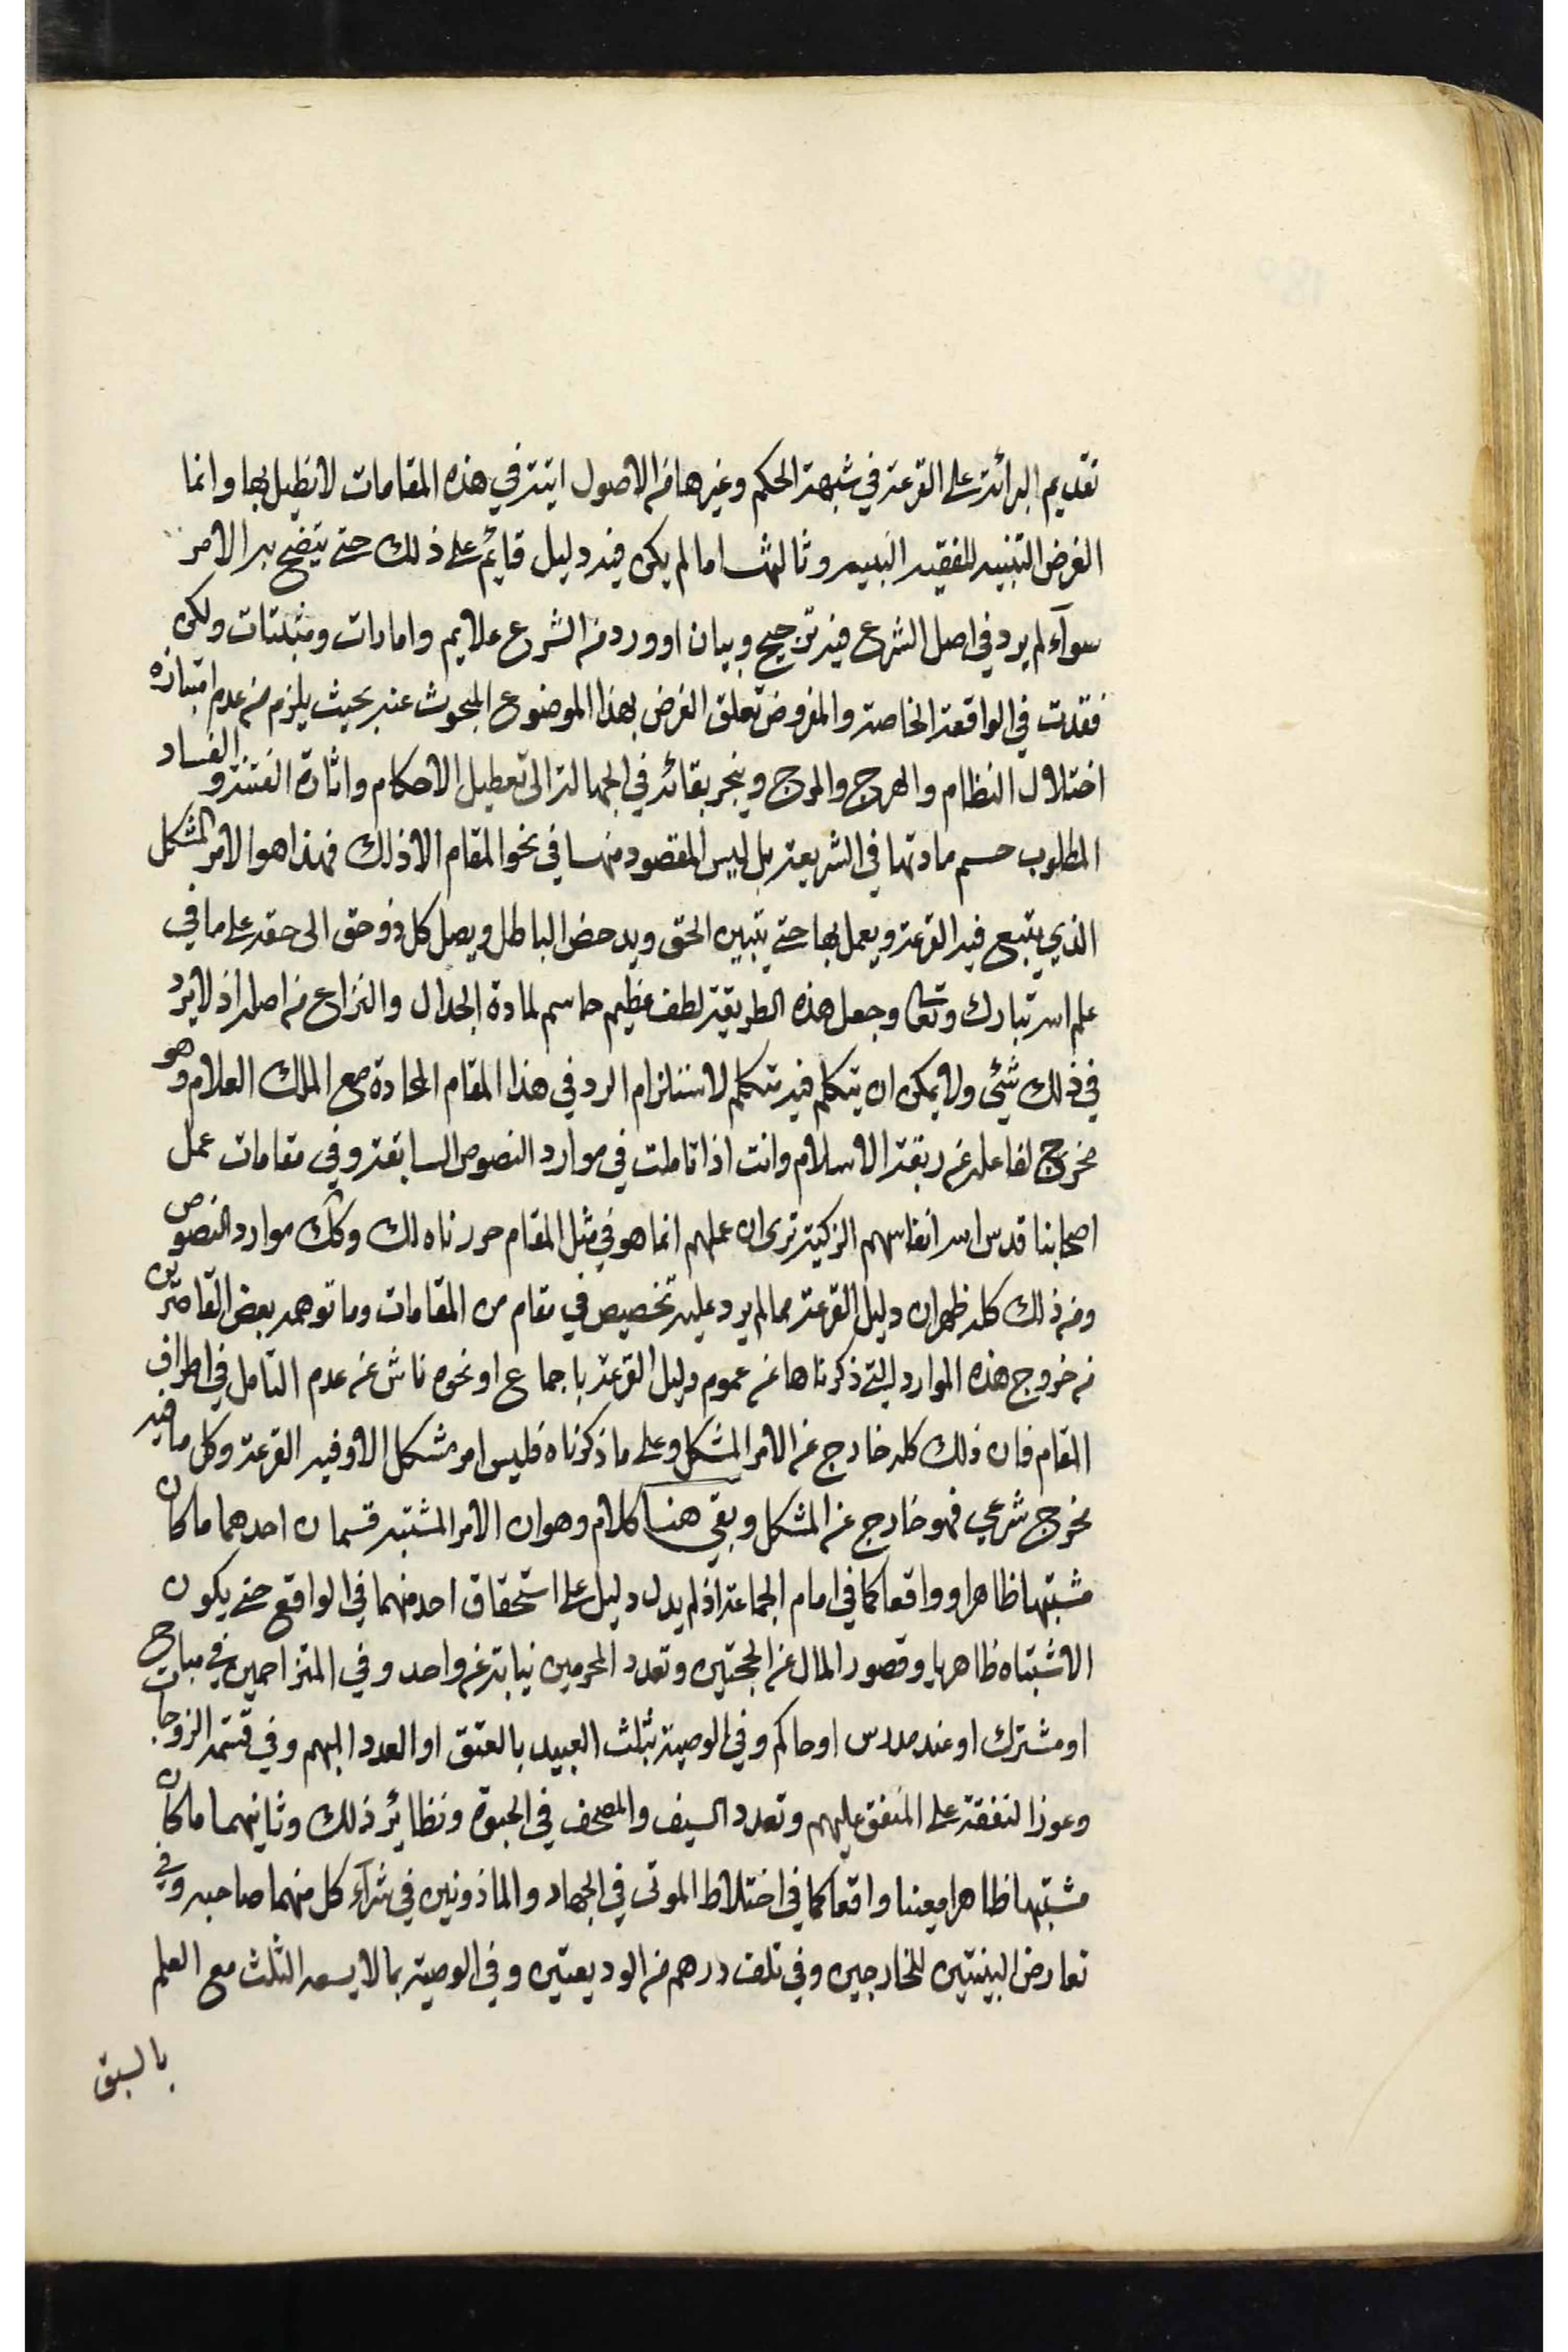 تقديم البرائة على القرعة في شبهة الحكم وغيرها من الاصول اتية في هذه المقامات لا نطيل بها وانما
الغرض التنبيه للفقيه النبيه وثالثها ما لم يكن فيه دليل قايم على ذلك حتى يتضح به الامر
سوآء لم يرد في اصل الشرع فيه ترجيح وبيان او ورد من الشرع علايم وامارات ومثبتات ولكن
فقدت في الواقعة الخاصة والمفروض تعلق الغرض بهذا الموضوع المبحوث عنه بحيث يلزم من عدم امتيازه
اختلال النظام والهرج والمرج وينجر بقائه في الجهالة الى تعطيل الاحكام واثارة الفتنة والفساد
المطلوب حسم مادتها في الشريعة بل ليس المقصود منها في نحو المقام الا ذلك فهذا هو الامر المشكل
الذي يتبع فيه القرعة ويعمل بها حتى يتبين الحق ويدحض الباطل ويصل كل ذو حق الى حقه على ما في
علم الله تبارك وتعالى وجعل هذه الطريقة لطف عظيم حاسم لمادة الجدال والنزاع من اصله اذ لا يرد
في ذلك شئ ولا يمكن ان يتكلم فيه متكلم لاستلزام الرد في هذا المقام المحادة مع الملك العلام وهو
مخرج لفاعله عن ربقة الاسلام وانت اذا تاملت في موارد النصوص السابقة وفي مقامات عمل
اصحابنا قدس الله انفاسهم الزكية ترى ان عملهم انما هو في مثل المقام حررناه لك وكك موارد النصوص
ومن ذلك كله ظهر ان دليل القرعة مما لم يرد عليه تخصيص في مقام من المقامات وما توهمه بعض القاصرين
من خروج هذه الموارد التي ذكرناها عن عموم دليل القرعة باجماع او نحوه ناش عن عدم التامل في اطراف
المقام فان ذلك كله خارج عن الامر المشكل وعلى ما ذكرناه فليس امر مشكل الا وفيه القرعة وكل ما فيه
مخرج شرعي فهو خارج عن المشكل وبقي هنا كلام وهو ان الامر المشتبه قسمان احدهما ما كان
مشتبها ظاهرا وواقعا كما في امام الجماعة اذ لم يدل دليل على استحقاق احد منهما في الواقع حتى يكون
الاشتباه ظاهريا وقصور المال عن الحجتين وتعدد المحرمين نيابة عن واحد وفي المتزاحمين في مباح
او مشترك او عند مدرس او حاكم وفي الوصية بثلث العبيد بالعتق او العدد المبهم وفي قسمة الزوجات
وعوز النفقة على المنفق عليهم وتعدد السيف والمصحف في الحبوة ونظائر ذلك وثانيهما ما كان
مشتبها ظاهرا معينا واقعا كما في اختلاط الموتى في الجهاد والماذونين في شرآء كل منهما صاحبه وفي
تعارض البينتين للخارجين وفي تلف درهم من الوديعتين وفي الوصية بما لا يسعه الثلث مع العلم
بالسبق